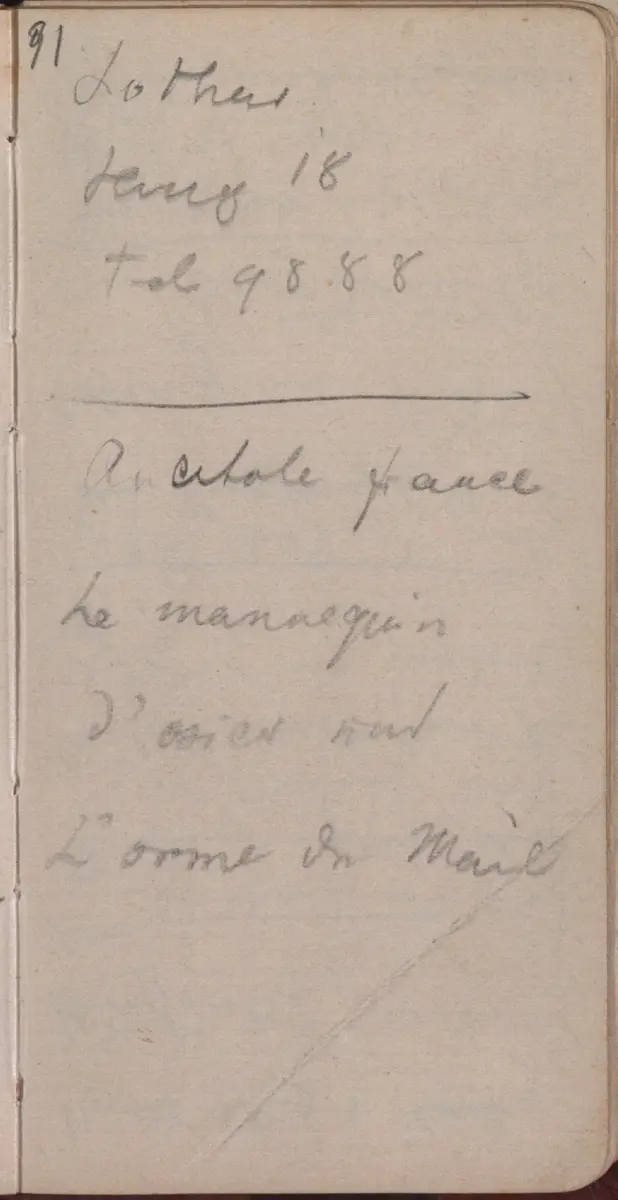 91
Lothar
18
Tel 9888
Anatole france
Le mannequin
d'osier und
L'orme du Mail